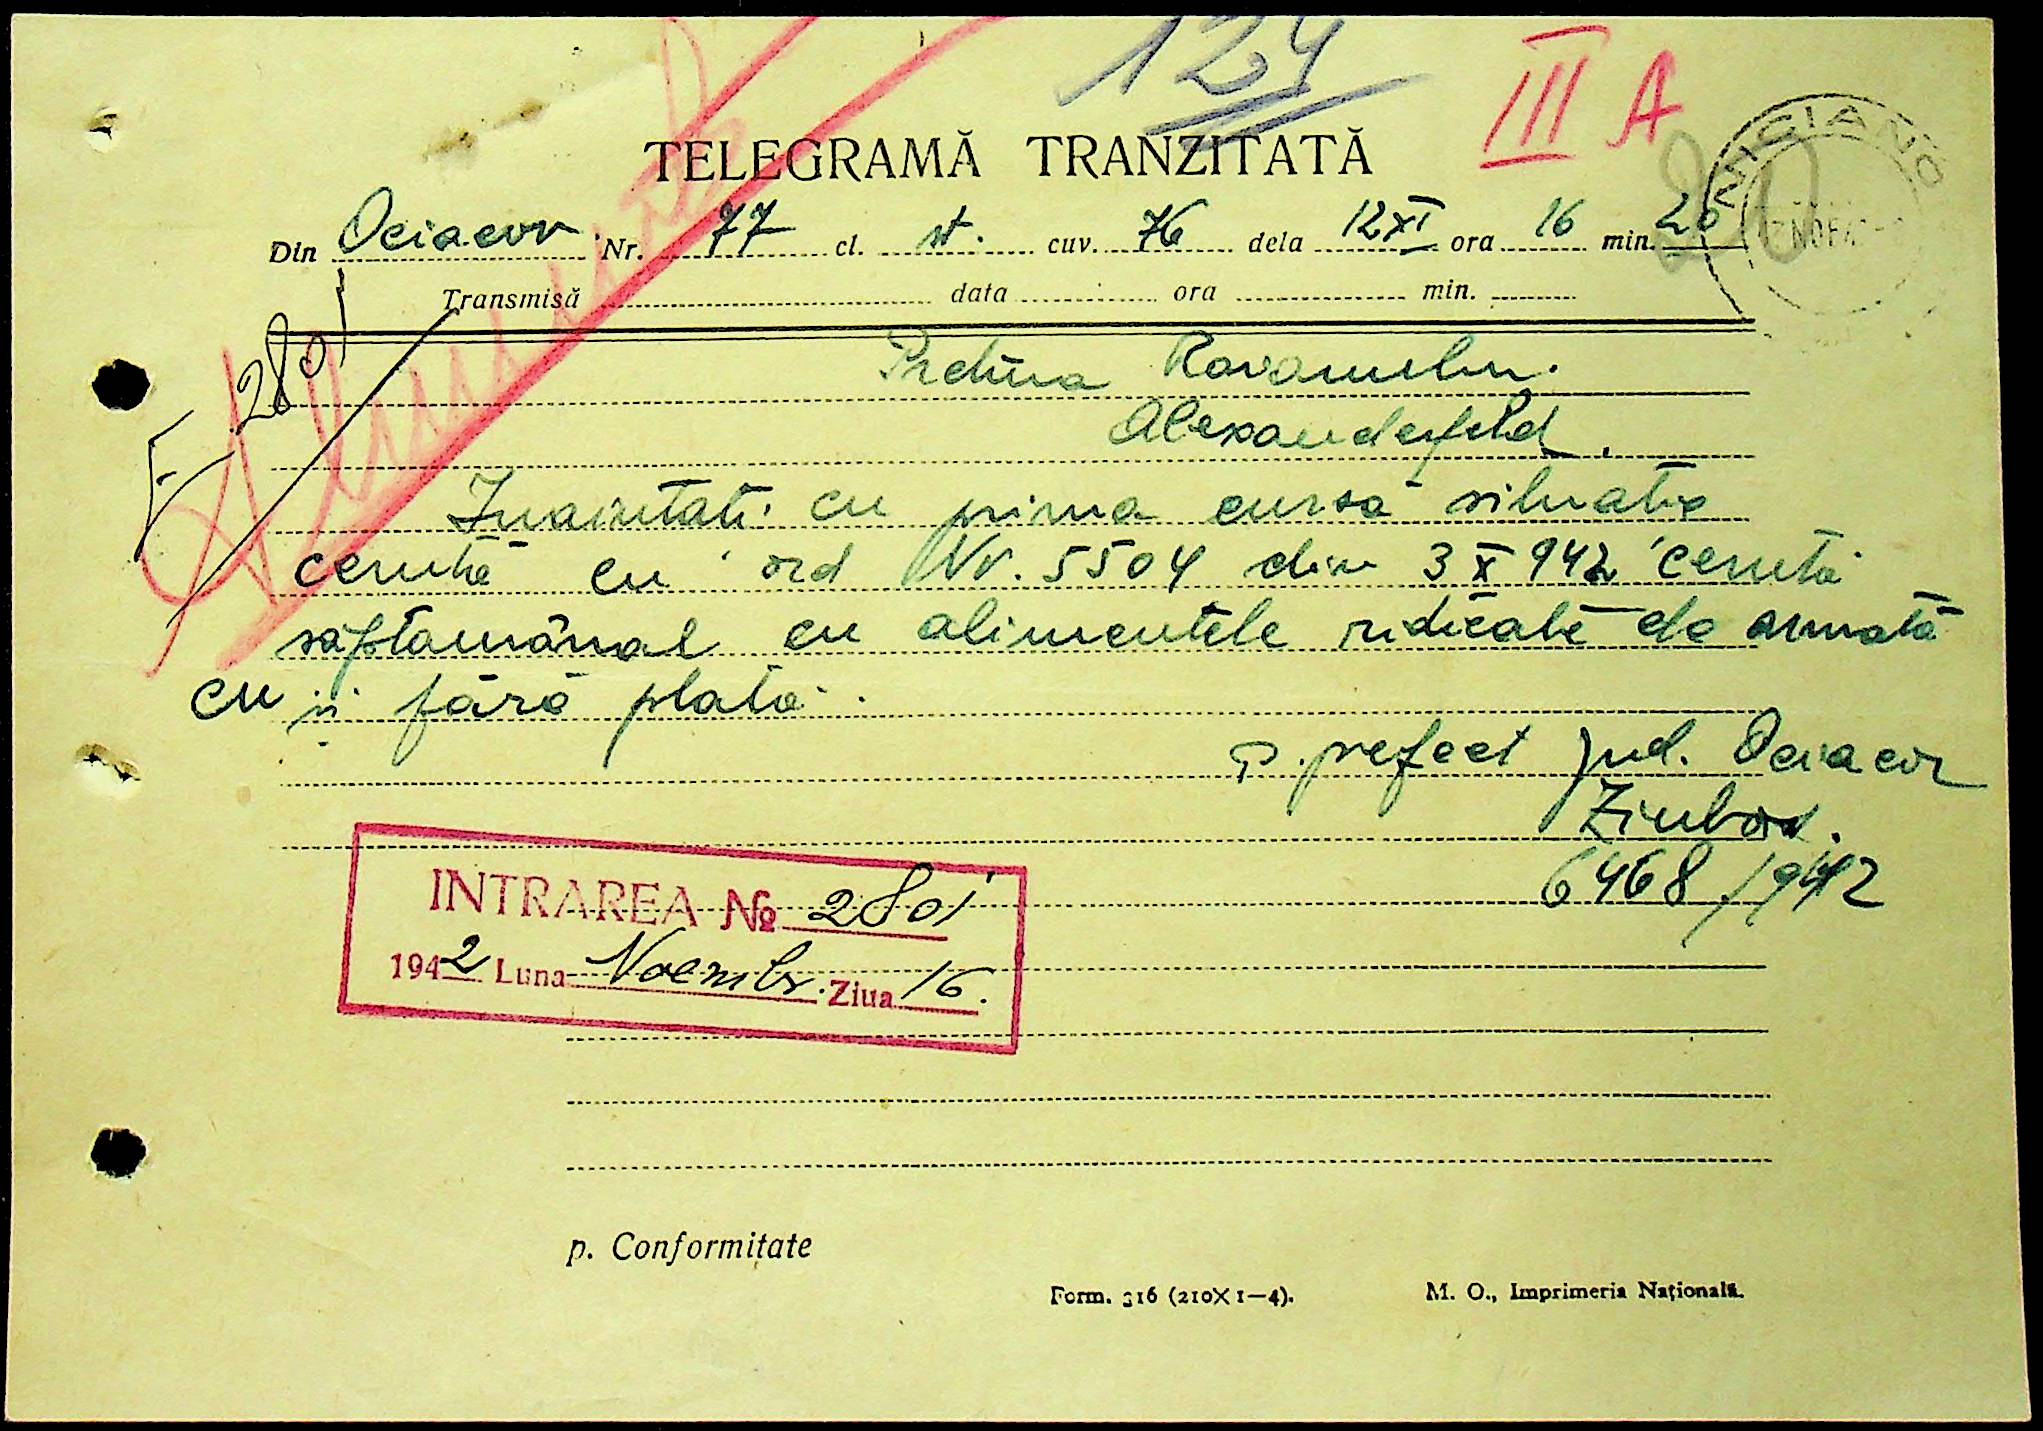 124
III A
20
TELEGRAMĂ TRANZITATĂ
Din Ociacov Nr. 77 cl. st. cuv. 76 dela 12 XI ora 16 min. 20
Transmisă data ora min.
E 2801
Alexanderfeld.
Inaintati cu prima cursă situatie
cerută cu ord Nr. 5504 din 3 X 942 cerută
săptamânal cu alimentele ridicate de armată
cu și fără plată.
p. prefect Jud. Ociacov
6468/942
INTRAREA № 2801
1942 Luna Noembr. Ziua 16.
p. Conformitate
Form. 316 (210X1—4).
M. O., Imprimeria Națională.